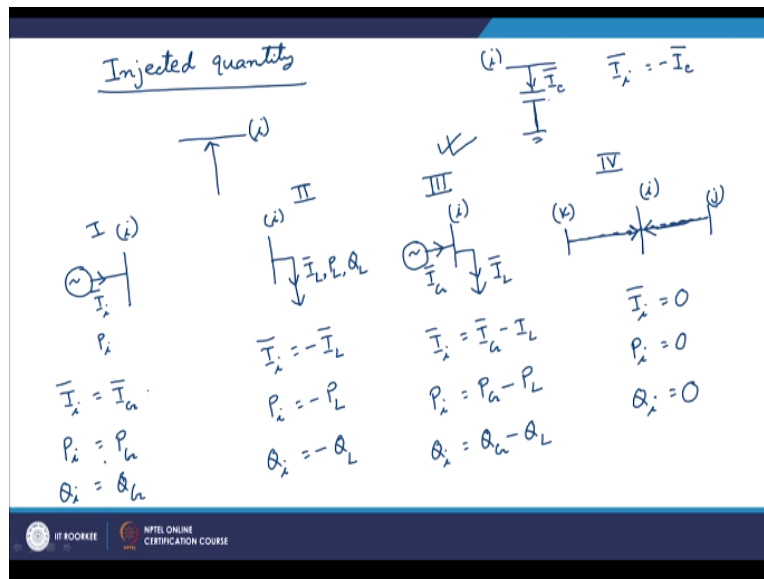 Injected quantity
(i) Ī_c Ī_i = -Ī_c
(i)
I (i)
Ī_i
P_i
Ī_i = Ī_G
P_i = P_G
Q_i = Q_G
II
(i)
Ī_L, P_L, Q_L
Ī_i = -Ī_L
P_i = -P_L
Q_i = -Q_L
III
(i)
Ī_G Ī_L
Ī_i = Ī_G - I_L
P_i = P_G - P_L
Q_i = Q_G - Q_L
IV
(k) (i) (j)
Ī_i = 0
P_i = 0
Q_i = 0
IIT ROORKEE
NPTEL ONLINE
CERTIFICATION COURSE